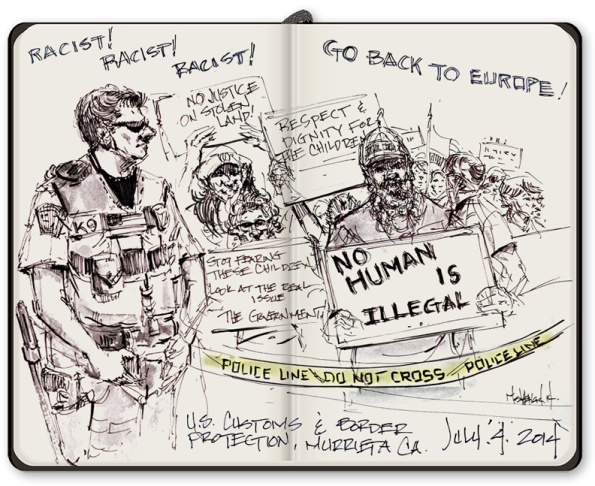 RACIST!
RACIST!
RACIST!
GO BACK TO EUROPE!
NO JUSTICE
ON STOLEN
LAND!
RESPECT &
DIGNITY FOR
THE CHILDREN
K9
STOP FEARING
THESE CHILDREN
LOOK AT THE REAL
ISSUE
THE GOVERNMENT
NO
HUMAN
IS
ILLEGAL
POLICE LINE DO NOT CROSS POLICE LINE
U.S. CUSTOMS & BORDER
PROTECTION, MURRIETA CA. July '4. 2014